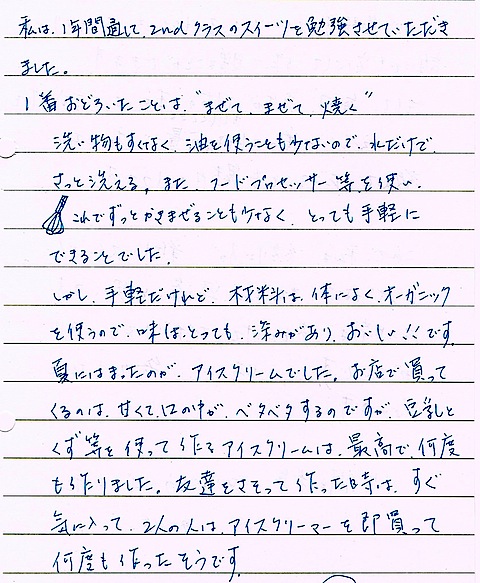 私は、1年間通して、2ndクラスのスイーツを勉強させていただき
ました。
1番おどろいたことは、"まぜて、まぜて、焼く"
洗い物もすくなく、油を使うことも少ないので、水だけで、
さっと洗える。また、フードプロセッサー等を使い、
これでずっとかきまぜることも少なく、とっても手軽に
できることでした。
しかし、手軽だけれど、材料は、体によく、オーガニック
を使うので、味は、とっても、深みがあり、おいしい!!です。
夏にはまったのが、アイスクリームでした。お店で買って
くるのは、甘くて、口の中が、ベタベタするのですが、豆乳と
くず等を使って作るアイスクリームは、最高で、何度
も作りました。友達をさそって作った時は、すぐ
気に入って、2人の人は、アイスクリーマーを即買って
何度も作ったそうです。